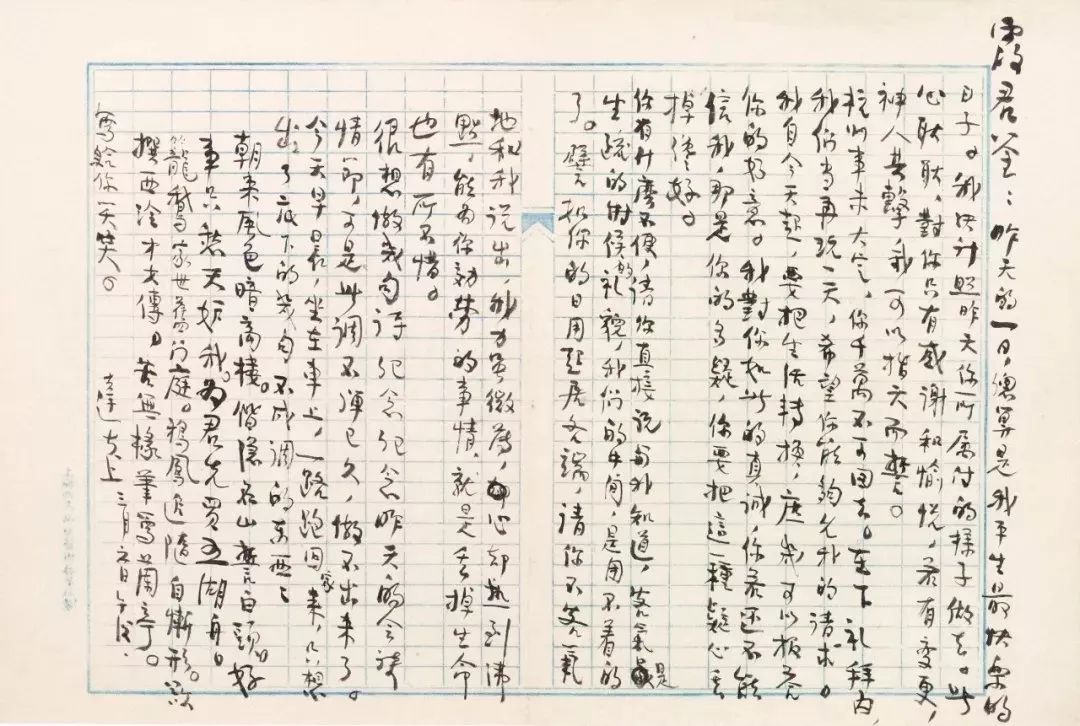 霞君：昨天的一日，總算是我平生最快樂的
日子。我决計照昨天你所属付的樣子做去。此
心耿耿，對你只有感谢和愉悦，若有变更，
神人共擊，我可以指天而誓。
杭州事未大定，你千萬不可回去。在下礼拜内
我们当再玩一天，希望你能夠允我的请求。
我自今天起，要把生活转换，庶幾可以报答
你的好意。我對你如此的真诚，你若还不能
信我，那是你的多疑，你要把這一種疑心丢
掉纔好。
你有什麼不便，请你直接说与我知道，客氣是
生疏的时候的礼貌，我们的中间，是用不着的
了。譬如你的日用起居各端，请你不客氣
地和我说出，我力虽微薄，心却熱到沸
點，能为你効劳的事情，就是丢掉生命
也有所不惜。
很想做幾句诗 纪念纪念昨天的会谈
情節，可是此调不弹已久，做不出来了。
今天早晨，坐在車上，一路跑回家来，只想
出了底下的幾句不成调的东西：
朝来風色暗高樓。偕隱名山誓白頭。好
事只愁天妒我。为君先買五湖舟。
籠鵝家世舊門庭。鴉鳳追隨自慚形。欲
撰西泠才女傳，苦無椽筆寫蘭亭。
寫给你一笑。
達夫上 三月 日午後